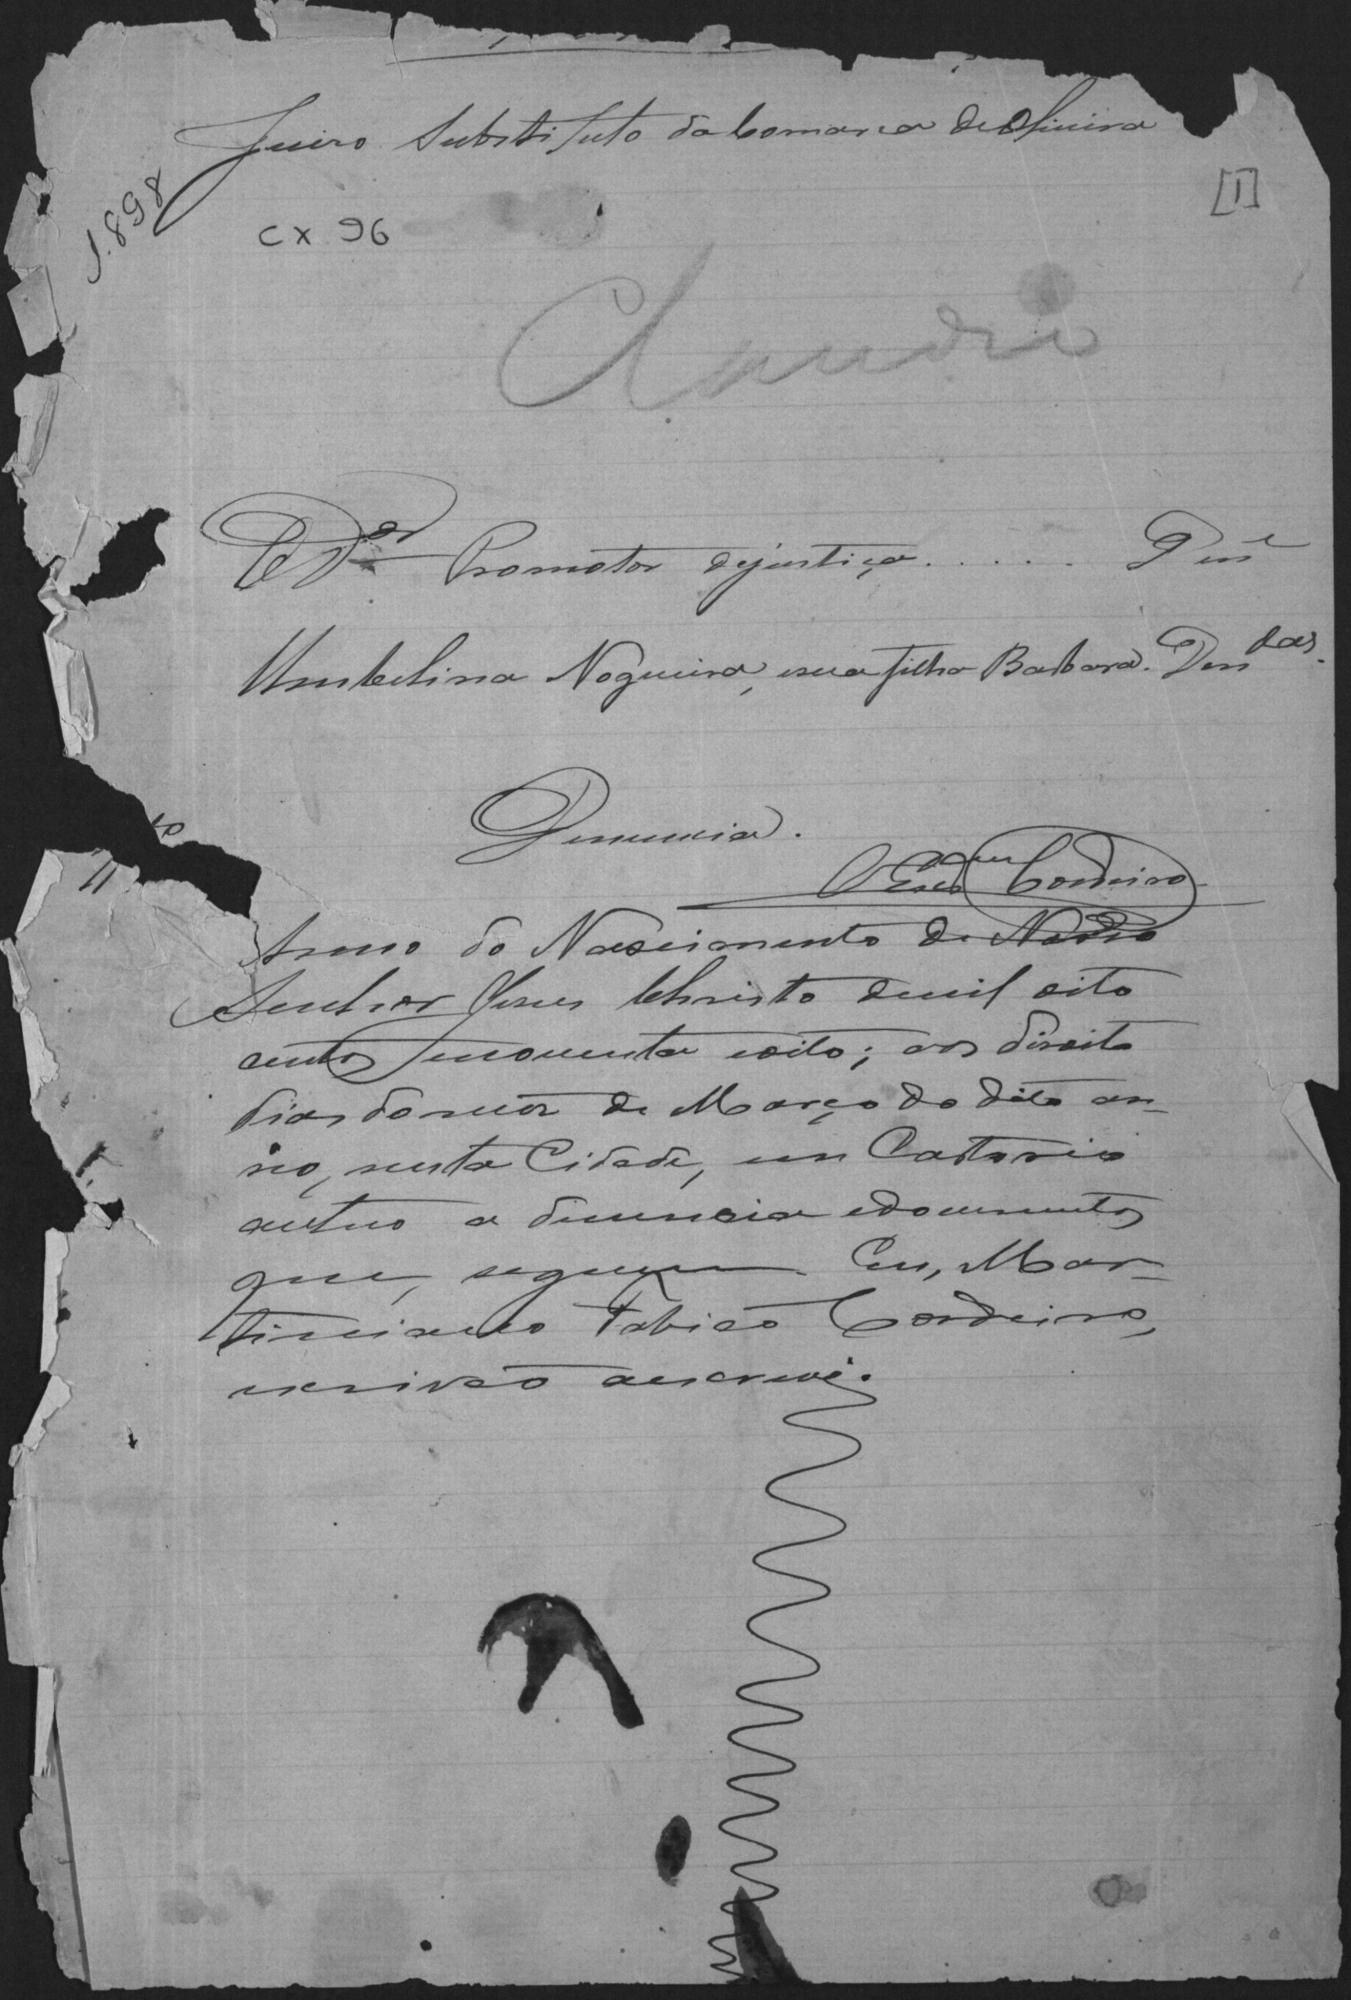 Juizo Substituto da Comarca de Oliveira
[1]
1.898
CX 96
Claudio
O Dor Promotor de justiça . . . . . . Dene
Umbelina Nogueira, e sua filha Barbara. Dendas.
Denuncia.
Escam Cordeiro
Anno do Nascimento de Nosso
Senhor Jesus Christo de mil oito
centos e noventa e oito; aos dizoito
dias do mez de Março do dito an-
no, nesta Cidade, em Cartorio
autuo a denuncia e documentos
que, seguem. Eu, Mar-
tiniano Fabião Cordeiro,
escrivão a escrevi.